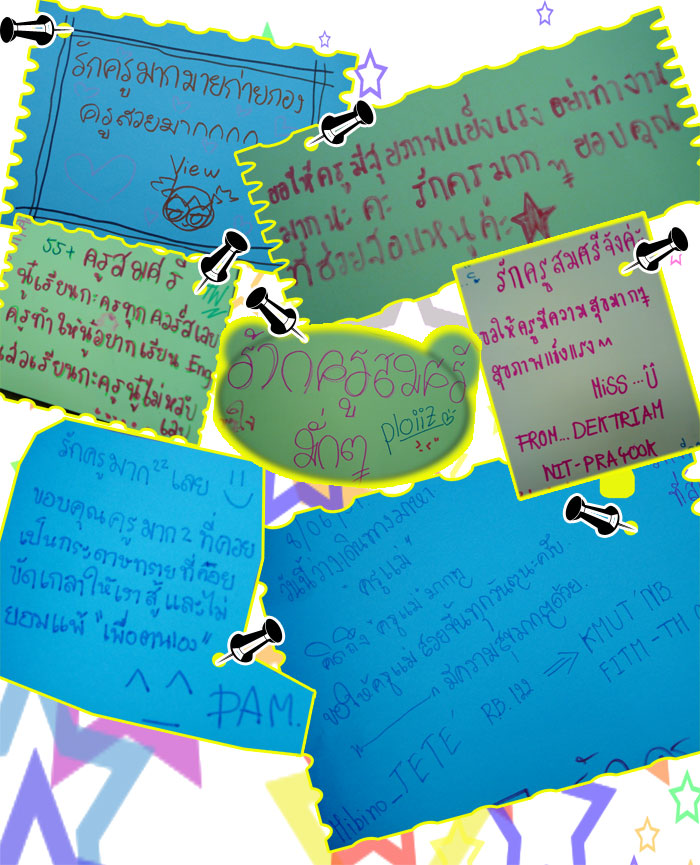 รักครูมากมายก่ายกอง
ครูสวยมากกกก
View
ขอให้ครูมีสุขภาพแข็งแรง อย่าทำงาน
มากนะคะ รักครูมากๆ ขอบคุณ
ที่ช่วยสอบหนูค่ะ
55+ ครูสมศรี
นู๋เรียนกะครูทุกคอร์สเลย
ครูทำให้นู๋อยากเรียน Eng
แล้วเรียนกะครูนู๋ไม่หลับ
เลย
รักครูสมศรีจังค่ะ
ขอให้ครูมีความสุขมากๆ
สุขภาพแข็งแรง ^^
Miss...
FROM... DEKTRIAM
NIT-PRAYOOK
ร้ากครูสมศรี
มั่กๆ
ploiiz
รักครูมาก²² เลย
ขอบคุณครูมาก2 ที่คอย
เป็นกระดาษทรายที่ค่อย
ขัดเกลาให้เราสู้ และไม่
ยอมแพ้ "เพื่อตนเอง"
^_^ PAM.
8/06/
วันนี้ว่างเดินทางมาหา
"ครูแม่"
คิดถึง "ครูแม่" มากๆๆ
ขอให้ครูแม่ สวยขึ้นทุกวันๆนะครับ.
มีความสุขมากๆด้วย.
Hibino_TETE R.B. 122 ⇒ KMUT'NB
FITM-TH